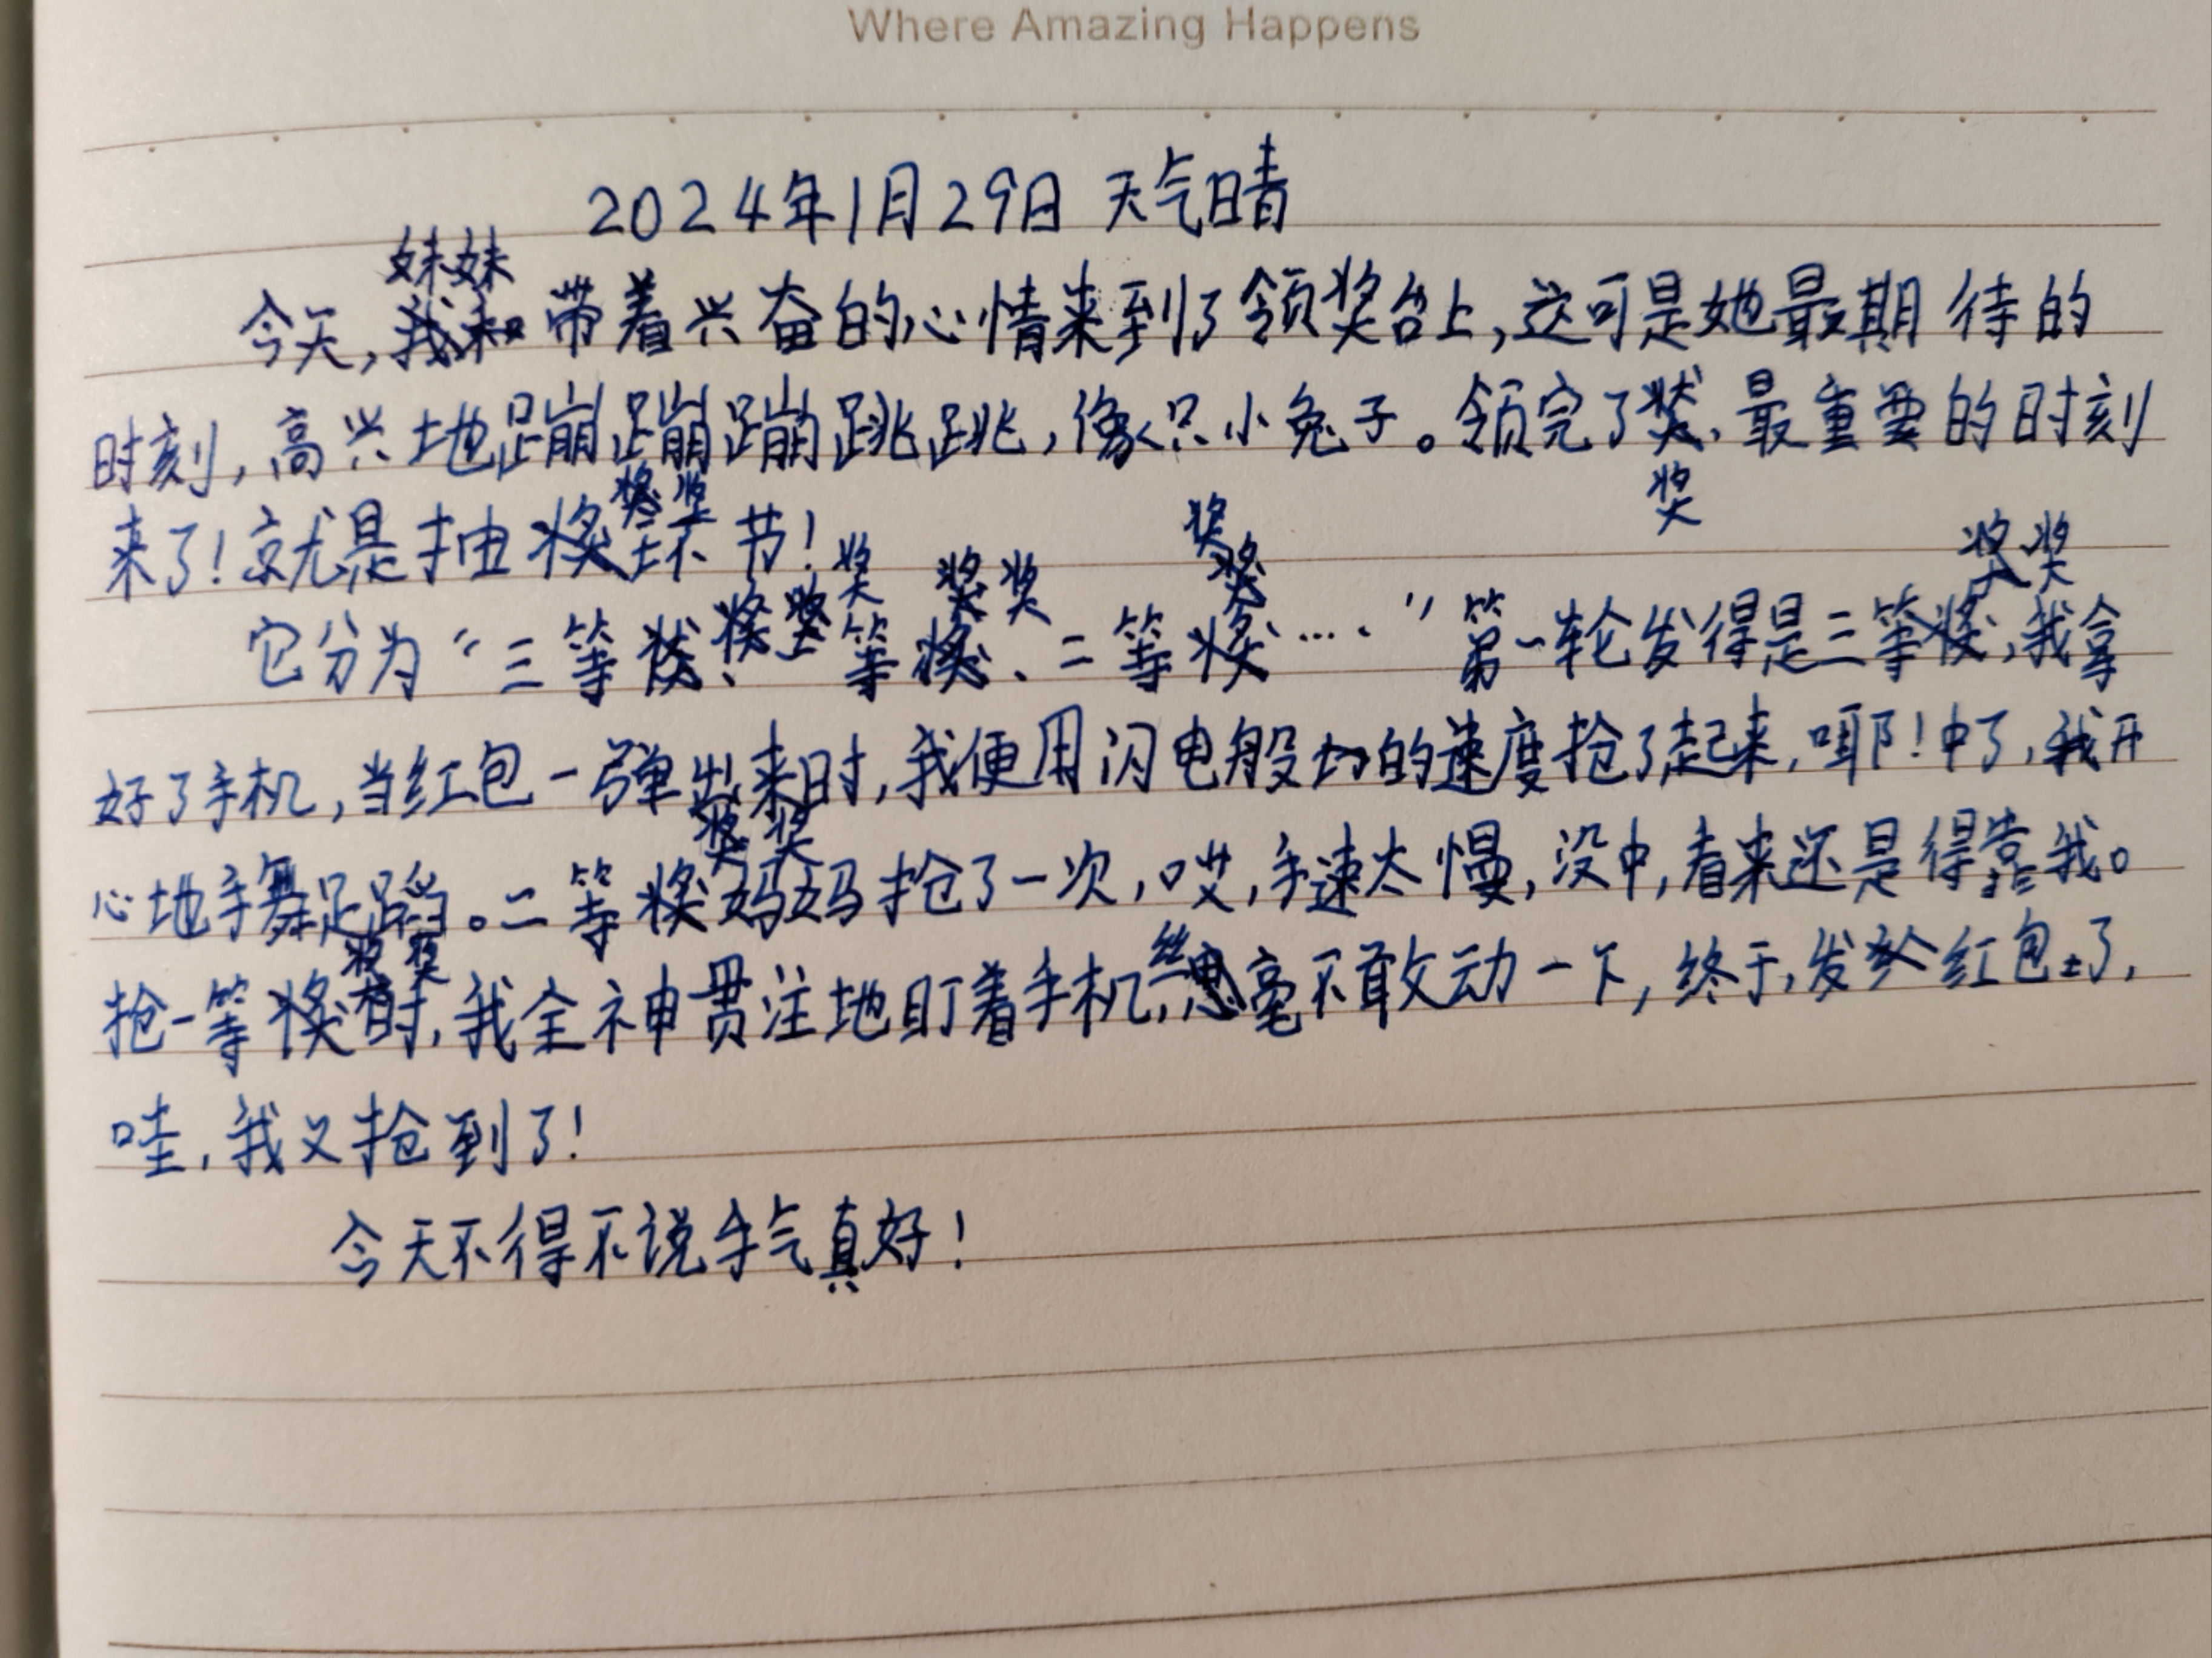 Where Amazing Happens
2024年1月29日 天气晴
妹妹
今天,我和带着兴奋的心情来到了领奖台上,这可是她最期待的
时刻,高兴地蹦蹦蹦跳跳,像只小兔子。领完了奖,最重要的时刻
奖
奖
来了!就是抽奖环节!
奖 奖 奖 奖
它分为“三等奖、一等奖、二等奖…..”第一轮发得是三等奖,我拿
好了手机,当红包一弹出来时,我便用闪电般的速度抢了起来,耶!中了,我开
奖
心地手舞足蹈。二等奖妈妈抢了一次,哎,手速太慢,没中,看来还是得靠我。
奖 丝
抢一等奖时,我全神贯注地盯着手机,毫不敢动一下,终于,发红包了,
哇,我又抢到了!
今天不得不说手气真好!